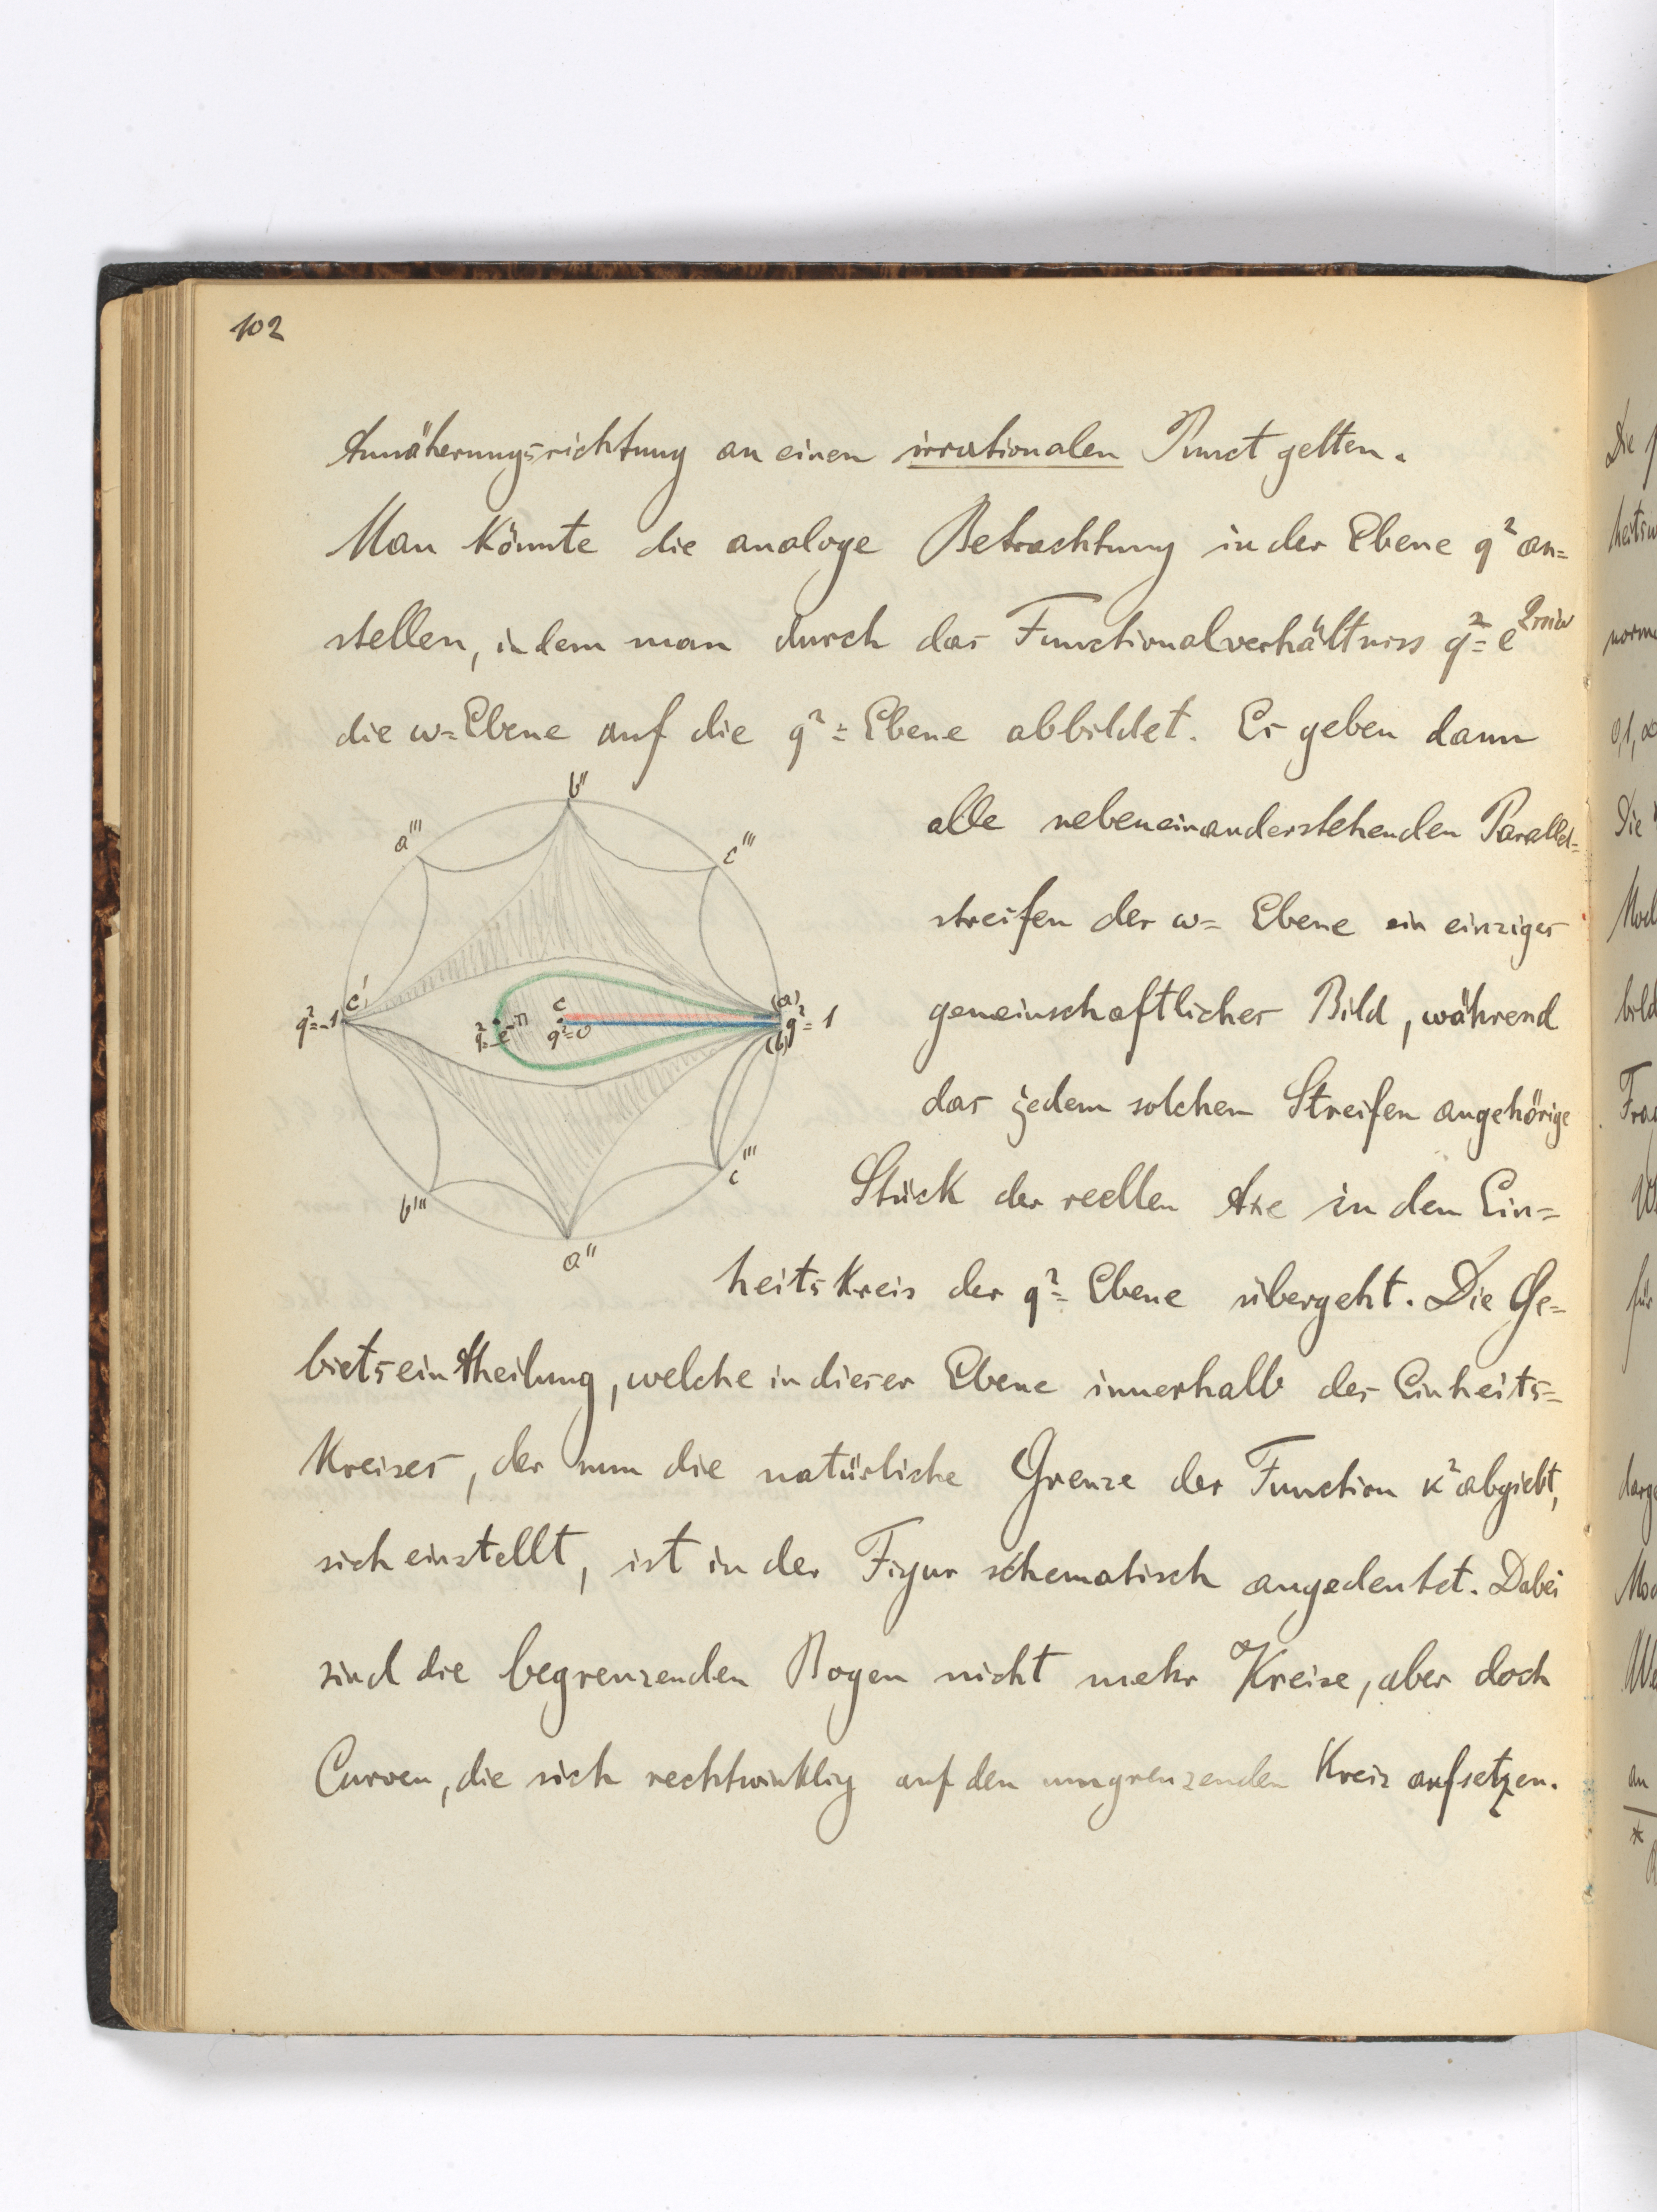 102
Annäherungsrichtung an einen irrationalen Punct gelten.
Man könnte die analoge Betrachtung in der Ebene q² an=
stellen, indem man durch das Functionalverhältniss q² = e^2πiω
die ω=Ebene auf die q²=Ebene abbildet. Es geben dann
alle nebeneinanderstehenden Parallel=
streifen der ω= Ebene ein einziges
gemeinschaftliches Bild, während
das jedem solchen Streifen angehörige
Stück der reellen Axe in den Ein=
heitskreis der q²= Ebene übergeht. Die Ge=
bietseintheilung, welche in dieser Ebene innerhalb des Einheits=
Kreises, der nun die natürliche Grenze der Function κ² abgiebt,
sich einstellt, ist in der Figur schematisch angedeutet. Dabei
sind die begrenzenden Bogen nicht mehr Kreise, aber doch
Curven, die sich rechtwinklig auf den umgrenzenden Kreis aufsetzen.
b''
a'''
c'''
c'
q²=-1
q²=-e^-π
c
q²=0
(a)
q²=1
(b)
c'''
b'''
a''